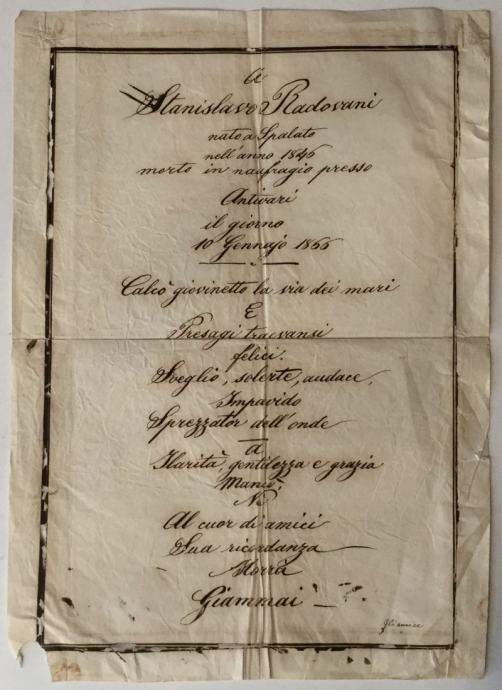 A
Stanislavo Radovani
nato a Spalato
nell'anno 1846
morto in naufragio presso
Antivari
il giorno
10 Gennajo 1866
Calcò giovinetto la via dei mari
E
Presagi traevansi
felici.
Sveglio, solerte, audace,
Impavido
Sprezzator dell'onde
A
Ilarità, gentilezza e grazia
Al cuor di amici
Sua ricordanza
Morrà
Giammai